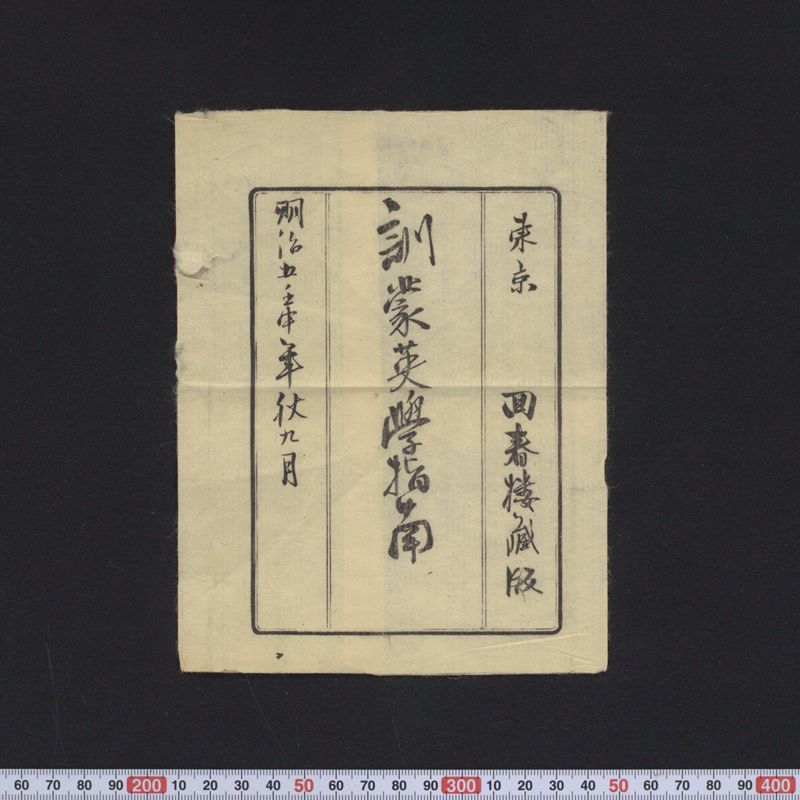 東京 回春楼蔵版
訓蒙英學指南
明治五壬申年秋九月
60 70 80 90 200 10 20 30 40 50 60 70 80 90 300 10 20 30 40 50 60 70 80 90 400